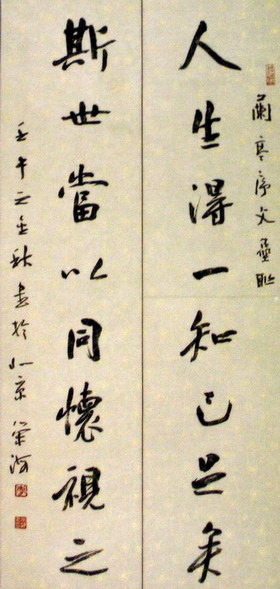 蘭亭序文集聯
人生得一知己足矣
斯世當以同懷視之
壬午之金秋書於北京